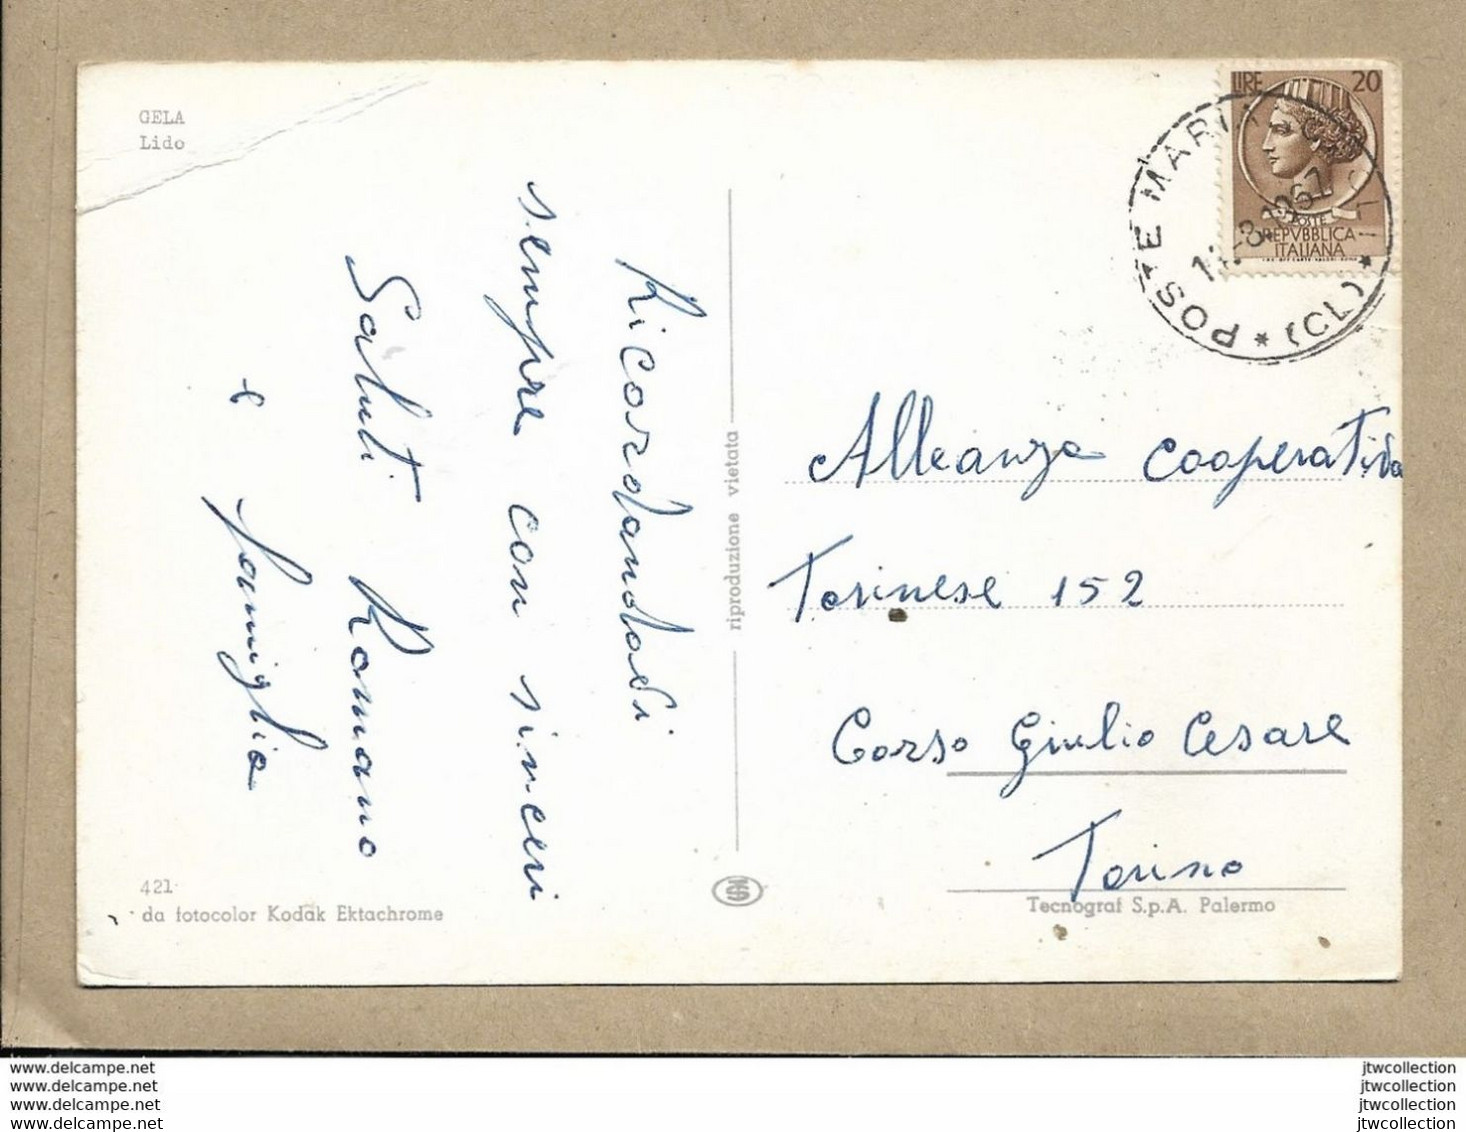 GELA
Lido
Ricordandoci
sempre con sinceri
Saluti Romano
e famiglia
421
da fotocolor Kodak Ektachrome
riproduzione vietata
LIRE 20
POSTE
REPVBBLICA
ITALIANA
POSTE MARI
(CL)
Alleanza Cooperativa
Torinese 152
Corso Giulio Cesare
Torino
Tecnograf S.p.A. Palermo
www.delcampe.net
www.delcampe.net
www.delcampe.net
www.delcampe.net
jtwcollection
jtwcollection
jtwcollection
jtwcollection